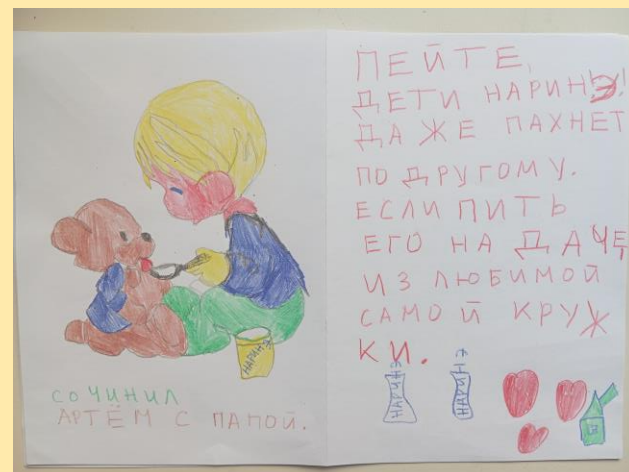 НАРИНЭ
СОЧИНИЛ
АРТЁМ С ПАПОЙ.
ПЕЙТЕ,
ДЕТИ НАРИНЭ!
ДАЖЕ ПАХНЕТ
ПО ДРУГОМУ.
ЕСЛИ ПИТЬ
ЕГО НА ДАЧЕ
ИЗ ЛЮБИМОЙ
САМОЙ КРУЖ
КИ.
НАРИНЭ
НАРИНЭ